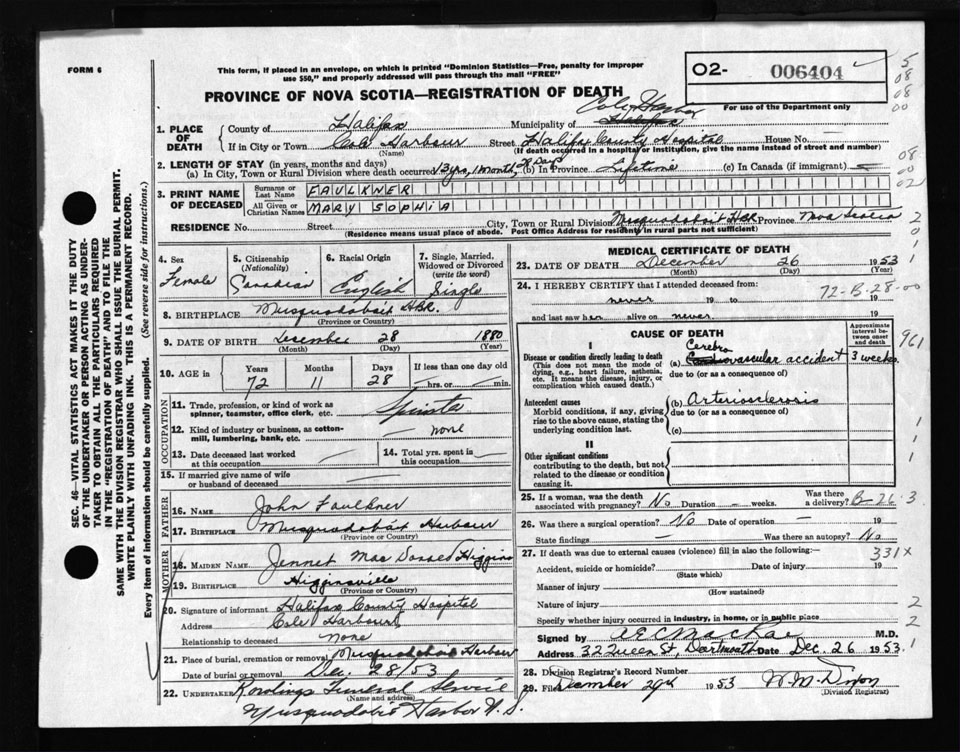 FORM 6
This form, if placed in an envelope, on which is printed "Dominion Statistics—Free, penalty for improper
use $50," and properly addressed will pass through the mail "FREE"
O2- 006404
For use of the Department only
PROVINCE OF NOVA SCOTIA—REGISTRATION OF DEATH
5
08
08
00
08
00
02
2
0
1
SEC. 46—VITAL STATISTICS ACT MAKES IT THE DUTY
OF THE UNDERTAKER OR PERSON ACTING AS UNDER-
TAKER TO OBTAIN ALL THE PARTICULARS REQUIRED
IN THE "REGISTRATION OF DEATH" AND TO FILE THE
SAME WITH THE DIVISION REGISTRAR WHO SHALL ISSUE THE BURIAL PERMIT.
WRITE PLAINLY WITH UNFADING INK. THIS IS A PERMANENT RECORD.
Every item of information should be carefully supplied. (See reverse side for instructions.)
1. PLACE OF DEATH
County of Halifax Municipality of Halifax Cole Harbor
If in City or Town Cole Harbour Street Halifax County Hospital House No.
(Name) (If death occurred in a hospital or institution, give the name instead of street and number)
2. LENGTH OF STAY (in years, months and days)
(a) In City, Town or Rural Division where death occurred 13 yrs, 1 month, 28 Days (b) In Province Lifetime (c) In Canada (if immigrant) —
3. PRINT NAME OF DECEASED
Surname or Last Name FAULKNER
All Given or Christian Names MARY SOPHIA
RESIDENCE No. Street City, Town or Rural Division Musquodoboit HBR. Province Nova Scotia
(Residence means usual place of abode. Post Office Address for residents in rural parts not sufficient)
4. Sex
Female
5. Citizenship
(Nationality)
Canadian
6. Racial Origin
English
7. Single, Married,
Widowed or Divorced
(write the word)
Single
8. BIRTHPLACE Musquodoboit HBR.
(Province or Country)
9. DATE OF BIRTH December 28 1880
(Month) (Day) (Year)
10. AGE in
Years Months Days If less than one day old
72 11 28 hrs. or min.
OCCUPATION
11. Trade, profession, or kind of work as
spinner, teamster, office clerk, etc. Spinster
12. Kind of industry or business, as cotton-
mill, lumbering, bank, etc. — none
13. Date deceased last worked
at this occupation —
14. Total yrs. spent in
this occupation —
15. If married give name of wife
or husband of deceased —
FATHER
16. Name John Faulkner
17. Birthplace Musquodoboit Harbour
(Province or Country)
MOTHER
18. MAIDEN NAME Jennet MacDonald Higgins
19. BIRTHPLACE Higginsville
(Province or Country)
20. Signature of informant Halifax County Hospital
Address Cole Harbour
Relationship to deceased none
21. Place of burial, cremation or removal Musquodoboit Harbour
Date of burial or removal Dec. 28/53
22. UNDERTAKER Rowlings Funeral Service
(Name and Address)
Musquodoboit Harbor N.S.
MEDICAL CERTIFICATE OF DEATH
23. DATE OF DEATH December 26 1953
(Month) (Day) (Year)
24. I HEREBY CERTIFY that I attended deceased from:
never 19 to 19
72-B-28-00
and last saw her alive on never 19
CAUSE OF DEATH
Approximate interval between onset and death
961
I
Disease or condition directly leading to death
(This does not mean the mode of
dying, e.g., heart failure, asthenia,
etc. It means the disease, injury, or
complication which caused death.)
Cerebro
(a) vascular accident 3 weeks
due to (or as a consequence of)
Antecedent causes
Morbid conditions, if any, giving
rise to the above cause, stating the
underlying condition last.
(b) Arteriosclerosis
due to (or as a consequence of)
(c)
1
1
1
II
Other significant conditions
contributing to the death, but not
related to the disease or condition
causing it.
25. If a woman, was the death
associated with pregnancy? No Duration — weeks. Was there a delivery? B-26-3
26. Was there a surgical operation? No Date of operation — 19
State findings — Was there an autopsy? No
27. If death was due to external causes (violence) fill in also the following:—
331X
Accident, suicide or homicide? Date of injury 19
(State which)
Manner of injury
(How sustained)
Nature of injury 2
Specify whether injury occurred in industry, in home, or in public place 2
Signed by A E C MacRae M.D.
Address 32 Queen St, Dartmouth Date Dec. 26 1953.
1
28. Division Registrar's Record Number
29. Filed December 29th 1953 W. M. Dixon
(Division Registrar)